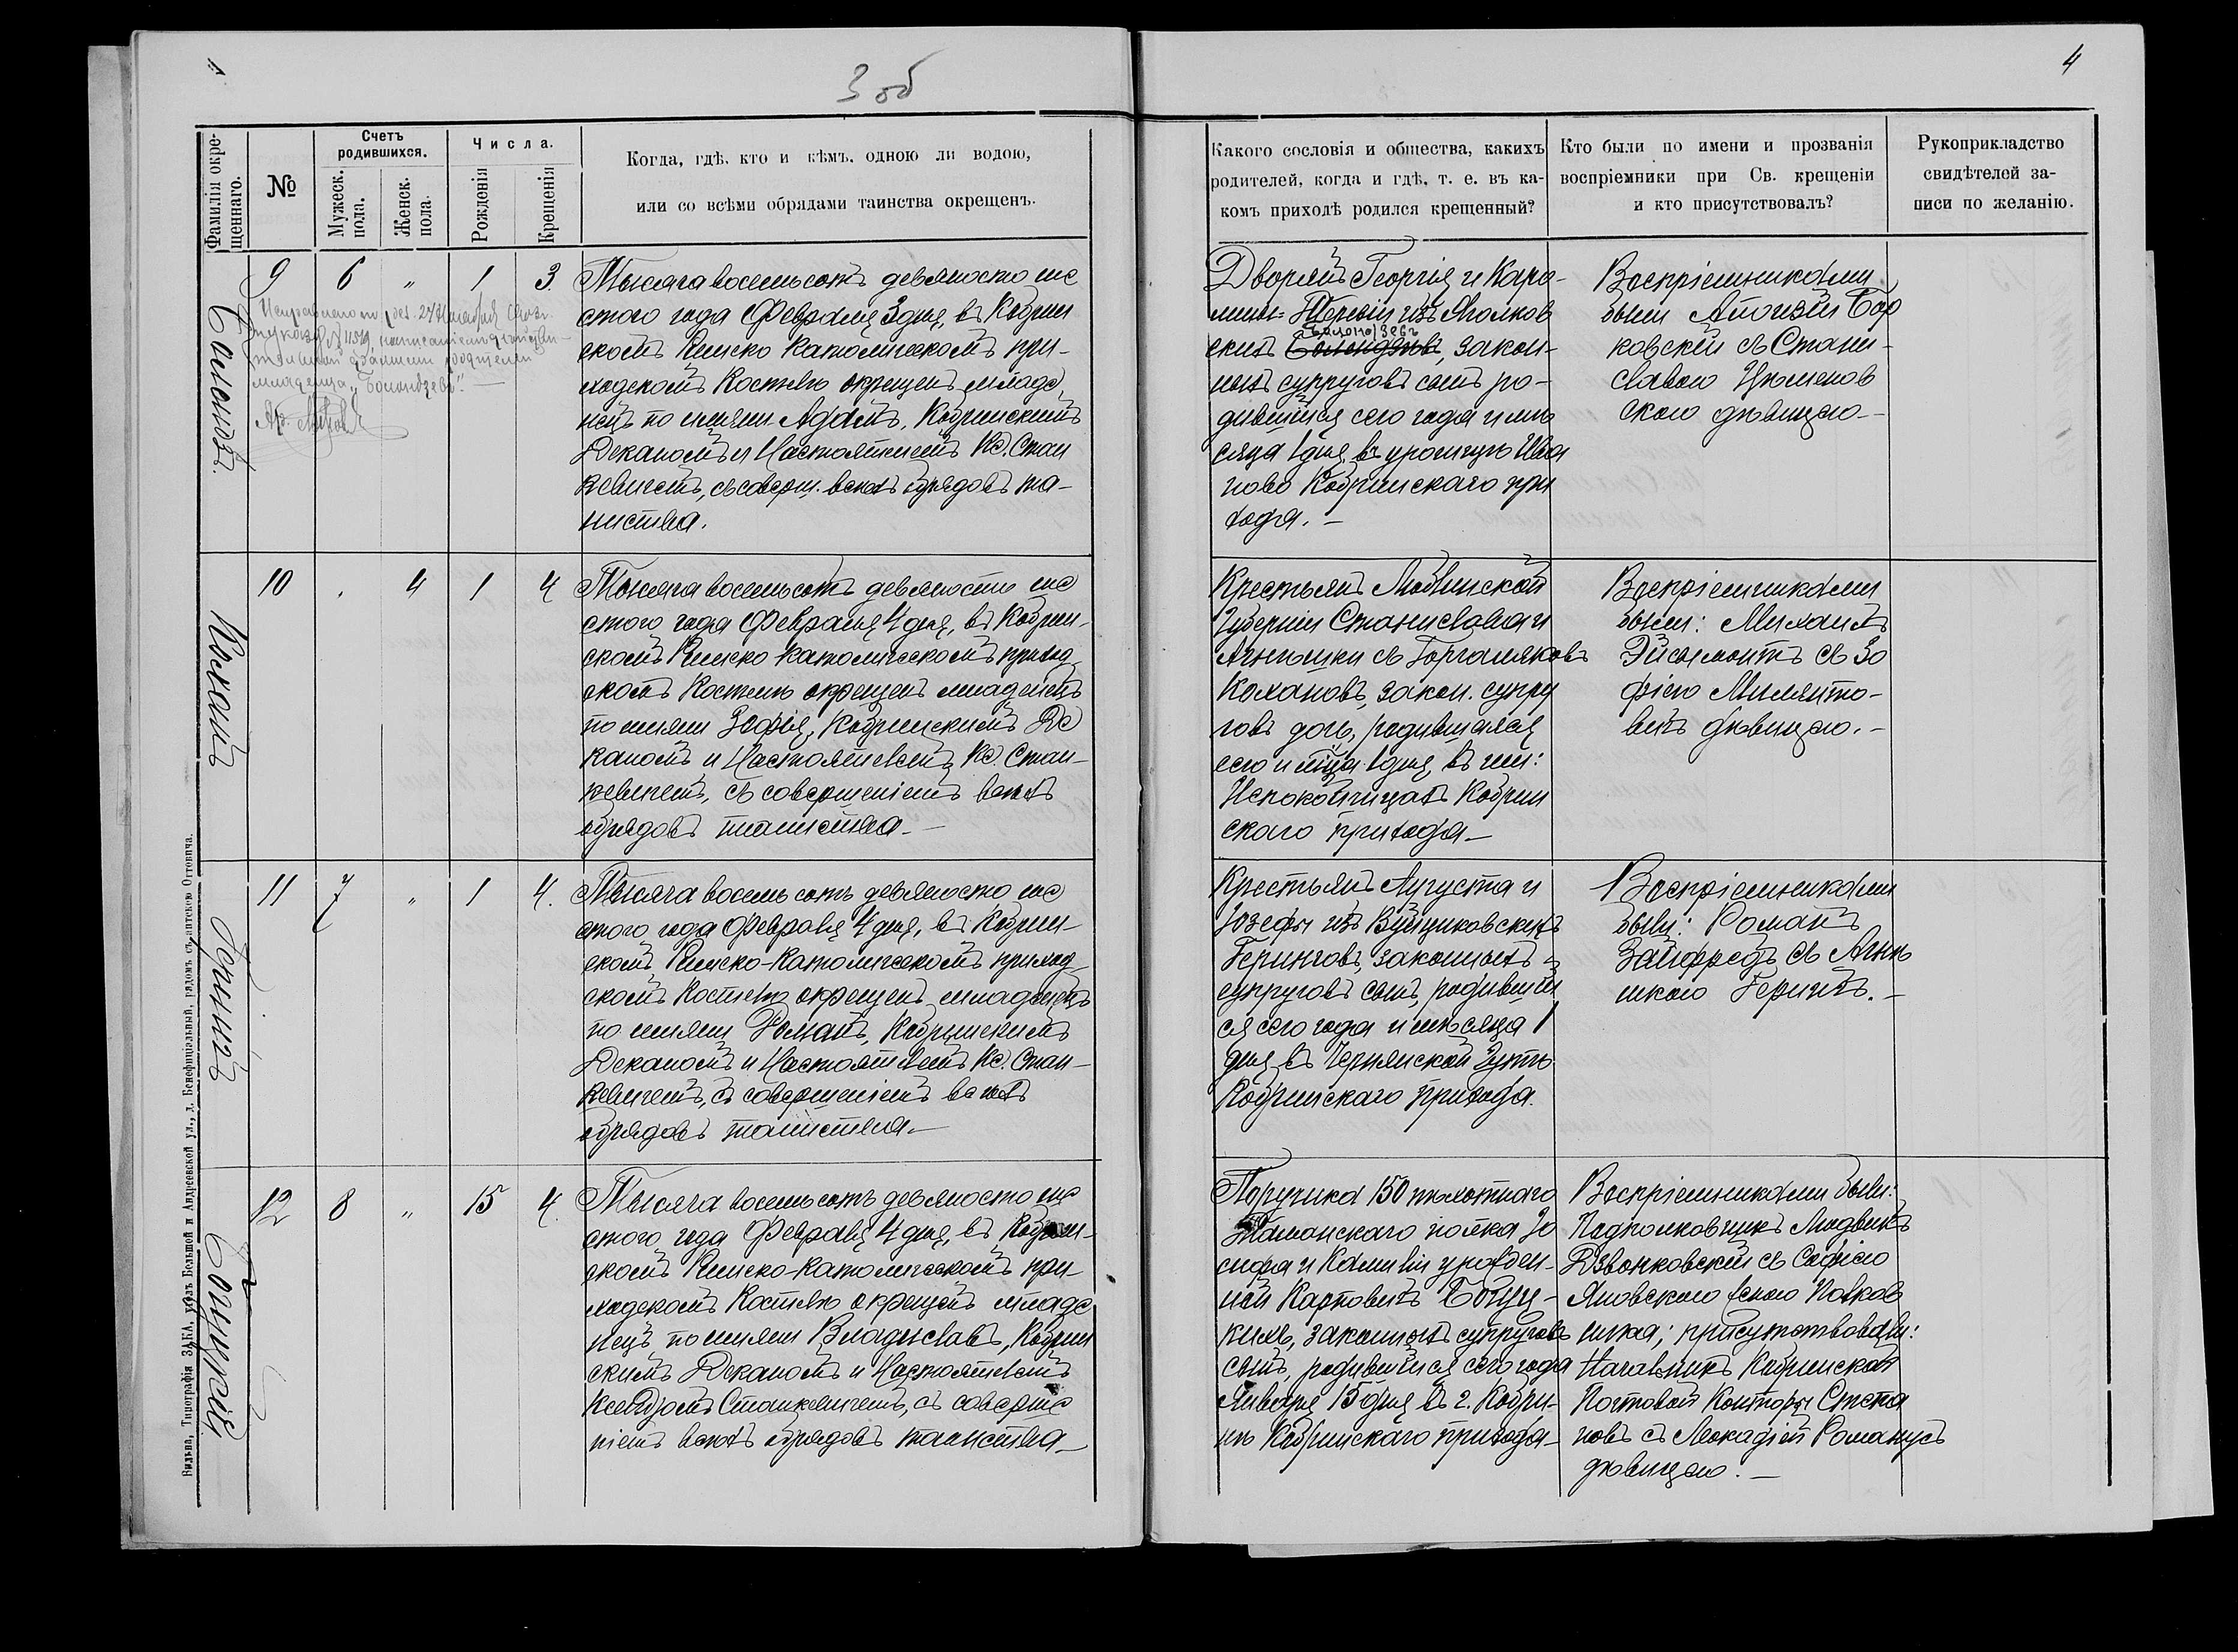 3 об
4
Фамилія окре-
щеннаго.
№
Счетъ
родившихся.
Мужеск.
пола.
Женск.
пола.
Числа.
Рожденія
Крещенія
Когда, гдѣ, кто и кѣмъ, одною ли водою,
или со всѣми обрядами таинства окрещенъ.
Какого сословія и общества, какихъ
родителей, когда и гдѣ, т. е. въ ка-
комъ приходѣ родился крещенный?
Кто были по имени и прозванія
воспріемники при Св. крещеніи
и кто присутствовалъ?
Рукоприкладство
свидѣтелей за-
писи по желанію.
9 6 " 1 3.
младенца „Болондзевъ".
Тысяча восемьсотъ девяносто ше
стого года Февраля 3 дня, въ Кобрин
скомъ Римско Католическомъ при-
ходскомъ Костелѣ окрещенъ младе
нецъ по имени Адамъ, Кобринскимъ
Деканомъ и Настоятелемъ Кс. Стан
кевичемъ, съ соверш. всѣхъ обрядовъ та-
инства.
Дворянъ Георгія и Каро-
лины- изъ
скихъ Болондзевъ, закон-
ныхъ супруговъ сынъ ро-
дившійся сего года и мѣ
сяца 1 дня въ урочищѣ Ива
ново Кобринскаго при
хода. –
Воспріемниками
были Алоизій Бор
ковскій съ Стани-
славою
скою дѣвицею.–
Коханъ
10 . 4 1 4
Тысяча восемьсотъ девяносто ше
стого года Февраля 4 дня, въ Кобрин-
скомъ Римско католическомъ приход-
скомъ Костелѣ окрещенъ младенецъ
по имени Зофія, Кобринскимъ Де
каномъ и Настоятелемъ Кс. Стан-
кевичемъ, съ совершеніемъ всѣхъ
обрядовъ таинства.–
Крестьянъ Люблинской
Губерніи Станислава и
Агнешки съ Горгаляковъ
Кохановъ, закон. супру
говъ дочь, родившаяся
сего и мца 1 дня, въ им:
Непокойчицахъ Кобрин
скаго прихода –
Воспріемниками
были: Михаилъ
Эйсымонтъ съ Зо
фіею Милянто-
вичъ дѣвицею. –
Герингъ
11 7 " 1 4.
Тысяча восемь сотъ девяносто ше
стого года Февраля 4 дня, въ Кобрин-
скомъ Римско-Католическомъ приход-
скомъ Костелѣ окрещенъ младенецъ
по имени Романъ, Кобринскимъ
Деканомъ и Настоятелемъ Кс. Стан-
кевичемъ, съ совершеніемъ всѣхъ
обрядовъ таинства. –
Крестьянъ Августа и
Іозефы изъ Вуйциковскихъ
Геринговъ, законныхъ
супруговъ сынъ, родившій
ся сего года и мѣсяца 1
дня въ Чернянской Гутѣ
Кобринскаго прихода.
Воспріемниками
были: Романъ
Зайфредъ съ Агнѣ
шкою Герингъ. –
Боцуркій
12 8 " 15 4.
Тысяча восемь сотъ девяносто ше
стого года Февраля 4 дня, въ Кобрин-
скомъ Римско-Католическомъ при-
ходскомъ Костелѣ окрещенъ младе
нецъ по имени Владиславъ, Кобрин
скимъ Деканомъ и Настоятелемъ
Ксендзомъ Станкевичемъ, съ соверше
ніемъ всѣхъ обрядовъ таинства –
Поручика 150 пѣхотнаго
Таманскаго полка Іо
сифа и Камиліи урожден-
ной Карповичъ
законныхъ супруговъ
сынъ, родившійся сего года
Января 15 дня въ г. Кобри-
нѣ Кобринскаго прихода –
Воспріемниками были:
Подполковникъ Людвикъ
Дзвонковскій съ Софіею
Яновскою женою Полков
ника; присутствовали:
Начальникъ Кобринской
Почтовой Конторы Степа
новъ съ Леокадіей Романусъ
дѣвицею. –
Вильна, Типографія ЗАКА, уголъ Большой и Андреевской ул., д. Бенефиціальный, рядомъ съ аптекою Оттовича.